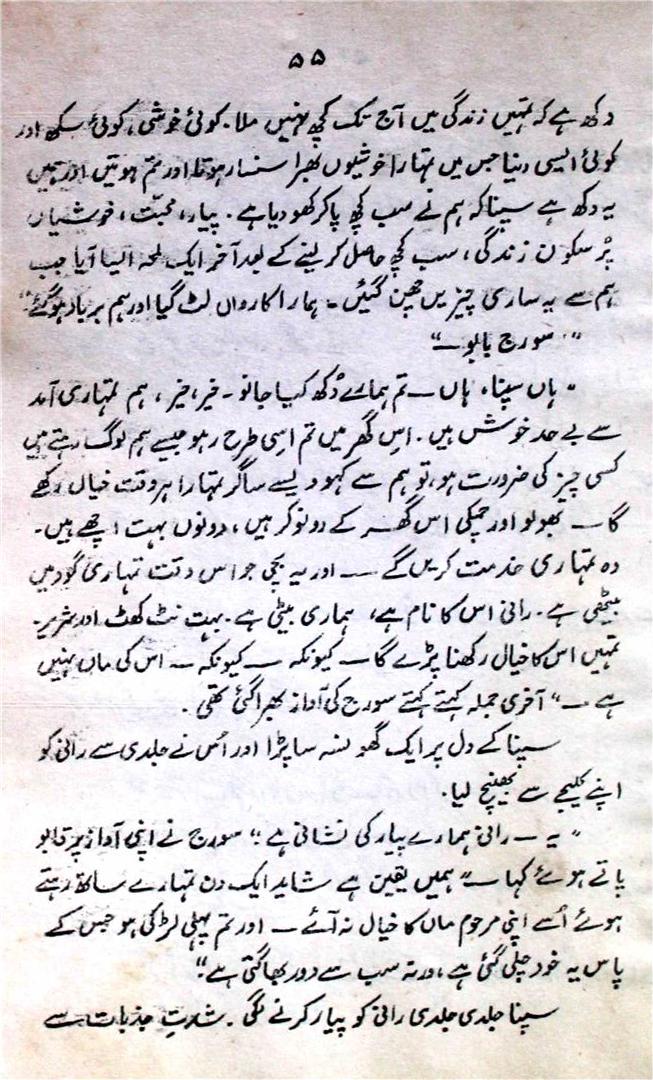 ۵۵
دکھ ہے کہ تمہیں زندگی میں آج تک کچھ نہیں ملا۔ کوئی خوشی، کوئی سکھ اور
کوئی ایسی دنیا جس میں تمہارا خوشیوں بھرا سنسار ہوتا اور تم ہوتیں اور ہمیں
یہ دکھ ہے سپنا کہ ہم نے سب کچھ پا کر کھو دیا ہے۔ پیار، محبت، خوشیاں
پُر سکون زندگی، سب کچھ حاصل کر لینے کے بعد آخر ایک لمحہ ایسا آیا جب
ہم سے یہ ساری چیزیں چھن گئیں۔ ہمارا کارواں لٹ گیا اور ہم برباد ہو گئے"
"سورج بابو—"
"ہاں سپنا، ہاں — تم ہمارے دُکھ کیا جانو۔ خیر، خیر، ہم تمہاری آمد
سے بے حد خوش ہیں۔ اس گھر میں تم اسی طرح رہو جیسے ہم لوگ رہتے ہیں
کسی چیز کی ضرورت ہو، تو ہم سے کہو ویسے ساگر تمہارا ہر وقت خیال رکھے
گا — بھولو اور چمکی اس گھر کے دو نوکر ہیں، دونوں بہت اچھے ہیں۔
وہ تمہاری خدمت کریں گے — اور یہ بچی جو اس وقت تمہاری گود میں
بیٹھی ہے۔ رانی اس کا نام ہے، ہماری بیٹی ہے۔ بہت نٹ کھٹ اور شریر۔
تمہیں اس کا خیال رکھنا پڑے گا — کیونکہ — کیونکہ — اس کی ماں نہیں
ہے —" آخری جملہ کہتے کہتے سورج کی آواز بھرا گئی تھی۔
سپنا کے دل پر ایک گھونسہ سا پڑا اور اُس نے جلدی سے رانی کو
اپنے کلیجے سے بھینچ لیا۔
"یہ — رانی ہمارے پیار کی نشانی ہے۔" سورج نے اپنی آواز پر قابو
پاتے ہوئے کہا —" ہمیں یقین ہے شاید ایک دن تمہارے ساتھ رہتے
ہوئے اُسے اپنی مرحوم ماں کا خیال نہ آئے — اور تم پہلی لڑکی ہو جس کے
پاس یہ خود چلی گئی ہے، ورنہ سب سے دور بھاگتی ہے۔"
سپنا جلدی جلدی رانی کو پیار کرنے لگی۔ شدتِ جذبات سے